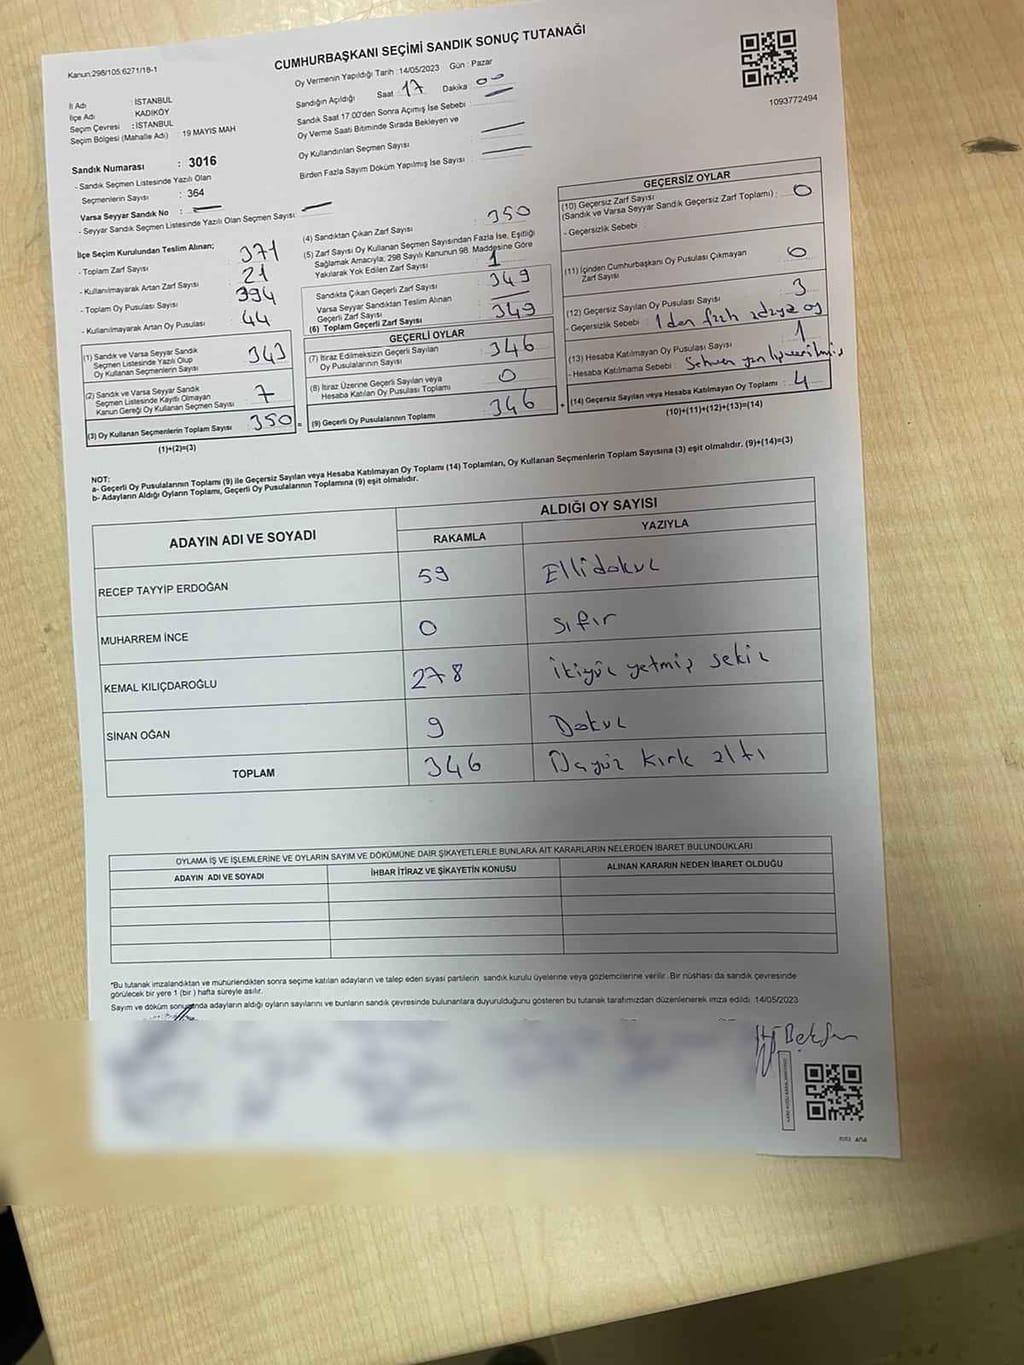 Kanun:298/105:6271/18-1
CUMHURBAŞKANI SEÇİMİ SANDIK SONUÇ TUTANAĞI
Oy Vermenin Yapıldığı Tarih :14/05/2023 Gün : Pazar
Sandığın Açıldığı Saat 17 Dakika 00
Sandık Saat 17.00'den Sonra Açımış İse Sebebi
Oy Verme Saati Bitiminde Sırada Bekleyen ve
Oy Kullandırılan Seçmen Sayısı
Birden Fazla Sayım Döküm Yapılmış İse Sayısı
1093772494
İl Adı : İSTANBUL
İlçe Adı : KADIKÖY
Seçim Çevresi : İSTANBUL
Seçim Bölgesi (Mahalle Adı) : 19 MAYIS MAH
Sandık Numarası : 3016
- Sandık Seçmen Listesinde Yazılı Olan
Seçmenlerin Sayısı : 364
Varsa Seyyar Sandık No :
- Seyyar Sandık Seçmen Listesinde Yazılı Olan Seçmen Sayısı:
İlçe Seçim Kurulundan Teslim Alınan;
- Toplam Zarf Sayısı 371
- Kullanılmayarak Artan Zarf Sayısı 21
- Toplam Oy Pusulası Sayısı 394
- Kullanılmayarak Artan Oy Pusulası 44
(1) Sandık ve Varsa Seyyar Sandık
Seçmen Listesinde Yazılı Olup
Oy Kullanan Seçmenlerin Sayısı 343
(2) Sandık ve Varsa Seyyar Sandık
Seçmen Listesinde Kayıtlı Olmayan
Kanun Gereği Oy Kullanan Seçmen Sayısı 7
(3) Oy Kullanan Seçmenlerin Toplam Sayısı 350 =
(1)+(2)=(3)
(4) Sandıktan Çıkan Zarf Sayısı 350
(5) Zarf Sayısı Oy Kullanan Seçmen Sayısından Fazla İse, Eşitliği
Sağlamak Amacıyla; 298 Sayılı Kanunun 98. Maddesine Göre
Yakılarak Yok Edilen Zarf Sayısı 1
Sandıkta Çıkan Geçerli Zarf Sayısı 349
Varsa Seyyar Sandıktan Teslim Alınan
Geçerli Zarf Sayısı
(6) Toplam Geçerli Zarf Sayısı 349
GEÇERLİ OYLAR
(7) İtiraz Edilmeksizin Geçerli Sayılan
Oy Pusulasının Sayısı 346
(8) İtiraz Üzerine Geçerli Sayılan veya
Hesaba Katılan Oy Pusulası Toplamı 0
(9) Geçerli Oy Pusulalarının Toplamı 346 +
GEÇERSİZ OYLAR
(10) Geçersiz Zarf Sayısı
(Sandık ve Varsa Seyyar Sandık Geçersiz Zarf Toplamı) : 0
- Geçersizlik Sebebi :
(11) İçinden Cumhurbaşkanı Oy Pusulası Çıkmayan
Zarf Sayısı 0
(12) Geçersiz Sayılan Oy Pusulası Sayısı 3
- Geçersizlik Sebebi : 1 den fazla adaya oy
(13) Hesaba Katılmayan Oy Pusulası Sayısı 1
- Hesaba Katılmama Sebebi : Sehven
(14) Geçersiz Sayılan veya Hesaba Katılmayan Oy Toplamı : 4
(10)+(11)+(12)+(13)=(14)
NOT:
a- Geçerli Oy Pusulalarının Toplamı (9) ile Geçersiz Sayılan veya Hesaba Katılmayan Oy Toplamı (14) Toplamları, Oy Kullanan Seçmenlerin Toplam Sayısına (3) eşit olmalıdır. (9)+(14)=(3)
b- Adayların Aldığı Oyların Toplamı, Geçerli Oy Pusulalarının Toplamına (9) eşit olmalıdır.
ADAYIN ADI VE SOYADI
ALDIĞI OY SAYISI
RAKAMLA YAZIYLA
RECEP TAYYİP ERDOĞAN 59 Ellidokuz
MUHARREM İNCE 0 sıfır
KEMAL KILIÇDAROĞLU 278 ikiyüz yetmiş sekiz
SİNAN OĞAN 9 Dokuz
TOPLAM 346 Üçyüz kırk altı
OYLAMA İŞ VE İŞLEMLERİNE VE OYLARIN SAYIM VE DÖKÜMÜNE DAİR ŞİKAYETLERLE BUNLARA AİT KARARLARIN NELERDEN İBARET BULUNDUKLARI
ADAYIN ADI VE SOYADI İHBAR İTİRAZ VE ŞİKAYETİN KONUSU ALINAN KARARIN NEDEN İBARET OLDUĞU
*Bu tutanak imzalandıktan ve mühürlendikten sonra seçime katılan adayların ve talep eden siyasi partilerin sandık kurulu üyelerine veya gözlemcilerine verilir. Bir nüshası da sandık çevresinde
görülecek bir yere 1 (bir ) hafta süreyle asılır.
Sayım ve döküm sonucunda adayların aldığı oyların sayılarını ve bunların sandık çevresinde bulunanlara duyurulduğunu gösteren bu tutanak tarafımızdan düzenlenerek imza edildi. 14/05/2023